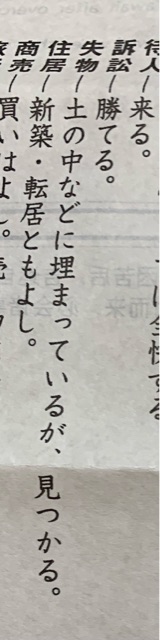 待人―来る。
訴訟―勝てる。
失物―土の中などに埋まっているが、見つかる。
住居―新築・転居ともよし。
商売―買いはよし。